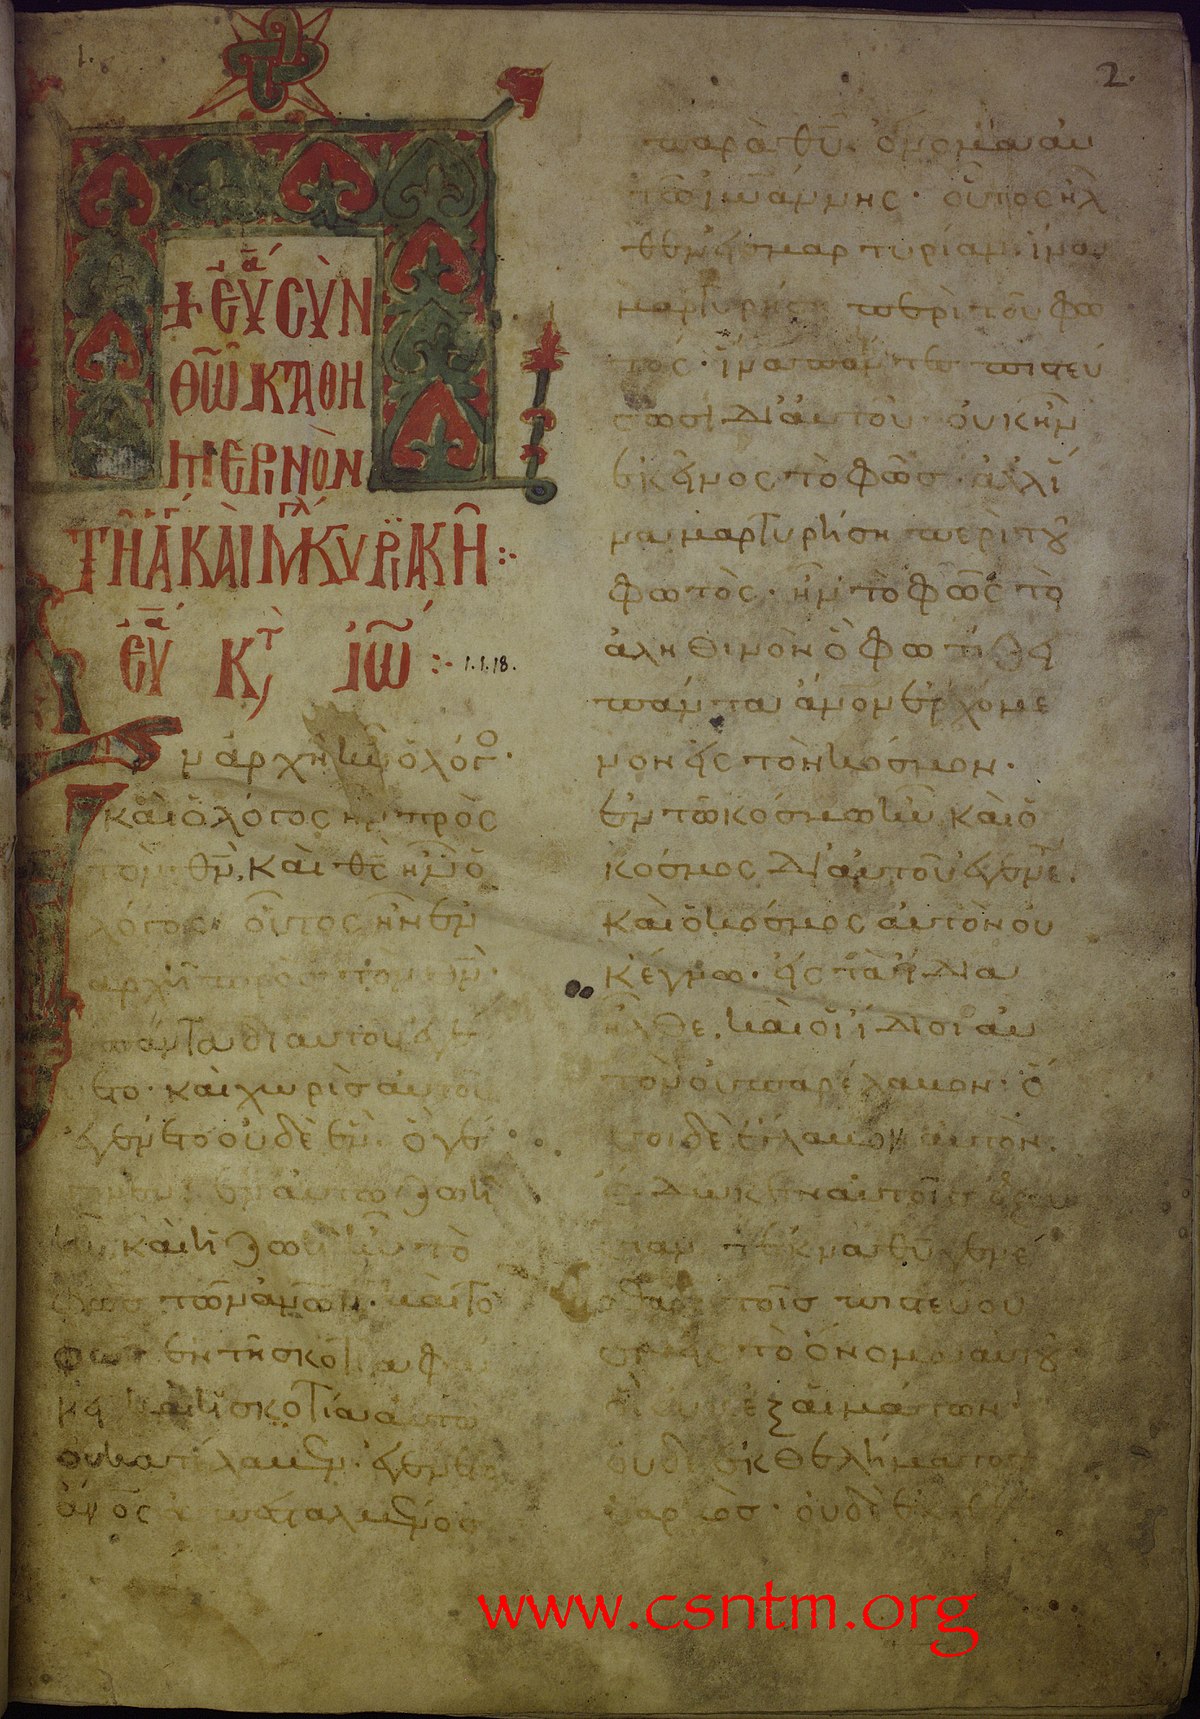 1.
2.
+ εὐα´ σὺν
θῶ καθη
μερνὸν
τῆ α κὰι μγλ´ κυριακῆ :·
εὐα´ κτ, ἰῶ :· 1.1.18.
ν ἀρχῆ ἦν ὁ λόγο·
καὶ ὁ λόγος ἦν πρὸς
τὸν θν, καὶ θς ἦν ὁ
λόγος· οὗτος ἦν ἐν
ἀρχῆ πρὸς τὸν θν·
πάντα δι αυτοῦ ἐγέ
ετο· καὶ χωρὶς αὐτοῦ
ἐγένετο οὐδὲ ἓν· ὃ γέ
γονεν· ἐν αὐτῶ ζωὴ
ἦν, κὰι ἡ ζωὴ ἦν τὸ
φῶς τῶν ἀνῶν· κὰι τὸ
φῶς ἐν τῆ σκοτία φαι
νει κὰι ἡ σκοτία αὐτὸ
οὐ κατέλαβεν· ἐγένετο
ἀνος ἀπεσταλμένος
παρὰ θυ· ὄνομα αυ
τῶ ἰωάννης· οὗτος ἦλ
θεν εἰς μαρτυρίαν· ἵνα
μαρτυρήση περὶ τοῦ φω
τός· ἵνα πάντες πιστεύ
σωσι δι ἀυτοῦ· οὐκ ἦν
ἐκεῖνος τὸ φῶς· ἀλλ ἵ
να μαρτυρήση περὶ τοῦ
φωτὸς· ἦν τὸ φῶς τὸ
ἀληθινὸν ὃ φωτίζει
πάντα ἄνον ἐρχόμε
νον εἰς τὸν κόσμον·
ἐν τῶ κόσμω ἦν καὶ ὁ
κόσμος δι ἀυτοῦ ἐγένετο.
καὶ ὁ κόσμος αὐτὸν οὐ
κ ἔγνω· εἰς τὰ ἴδια
ἦλθε, καὶ οἱ ἴδιοι αυ
τὸν οὐ παρέλαβον· ὅ
σοι δὲ ἔλαβον αὐτὸν,
ἔδωκεν αὐτοῖς ἐξου
σίαν τέκνα θυ γενέ
σθαι· τοῖς πιστεύου
σιν εἰς τὸ ὄνομα αυτοῦ
οἳ οὐκ ἐξ αἱμάτων·
οὐδὲ ἐκ θελήματος
σαρκὸς· οὐδὲ ἐκ θε
www.csntm.org